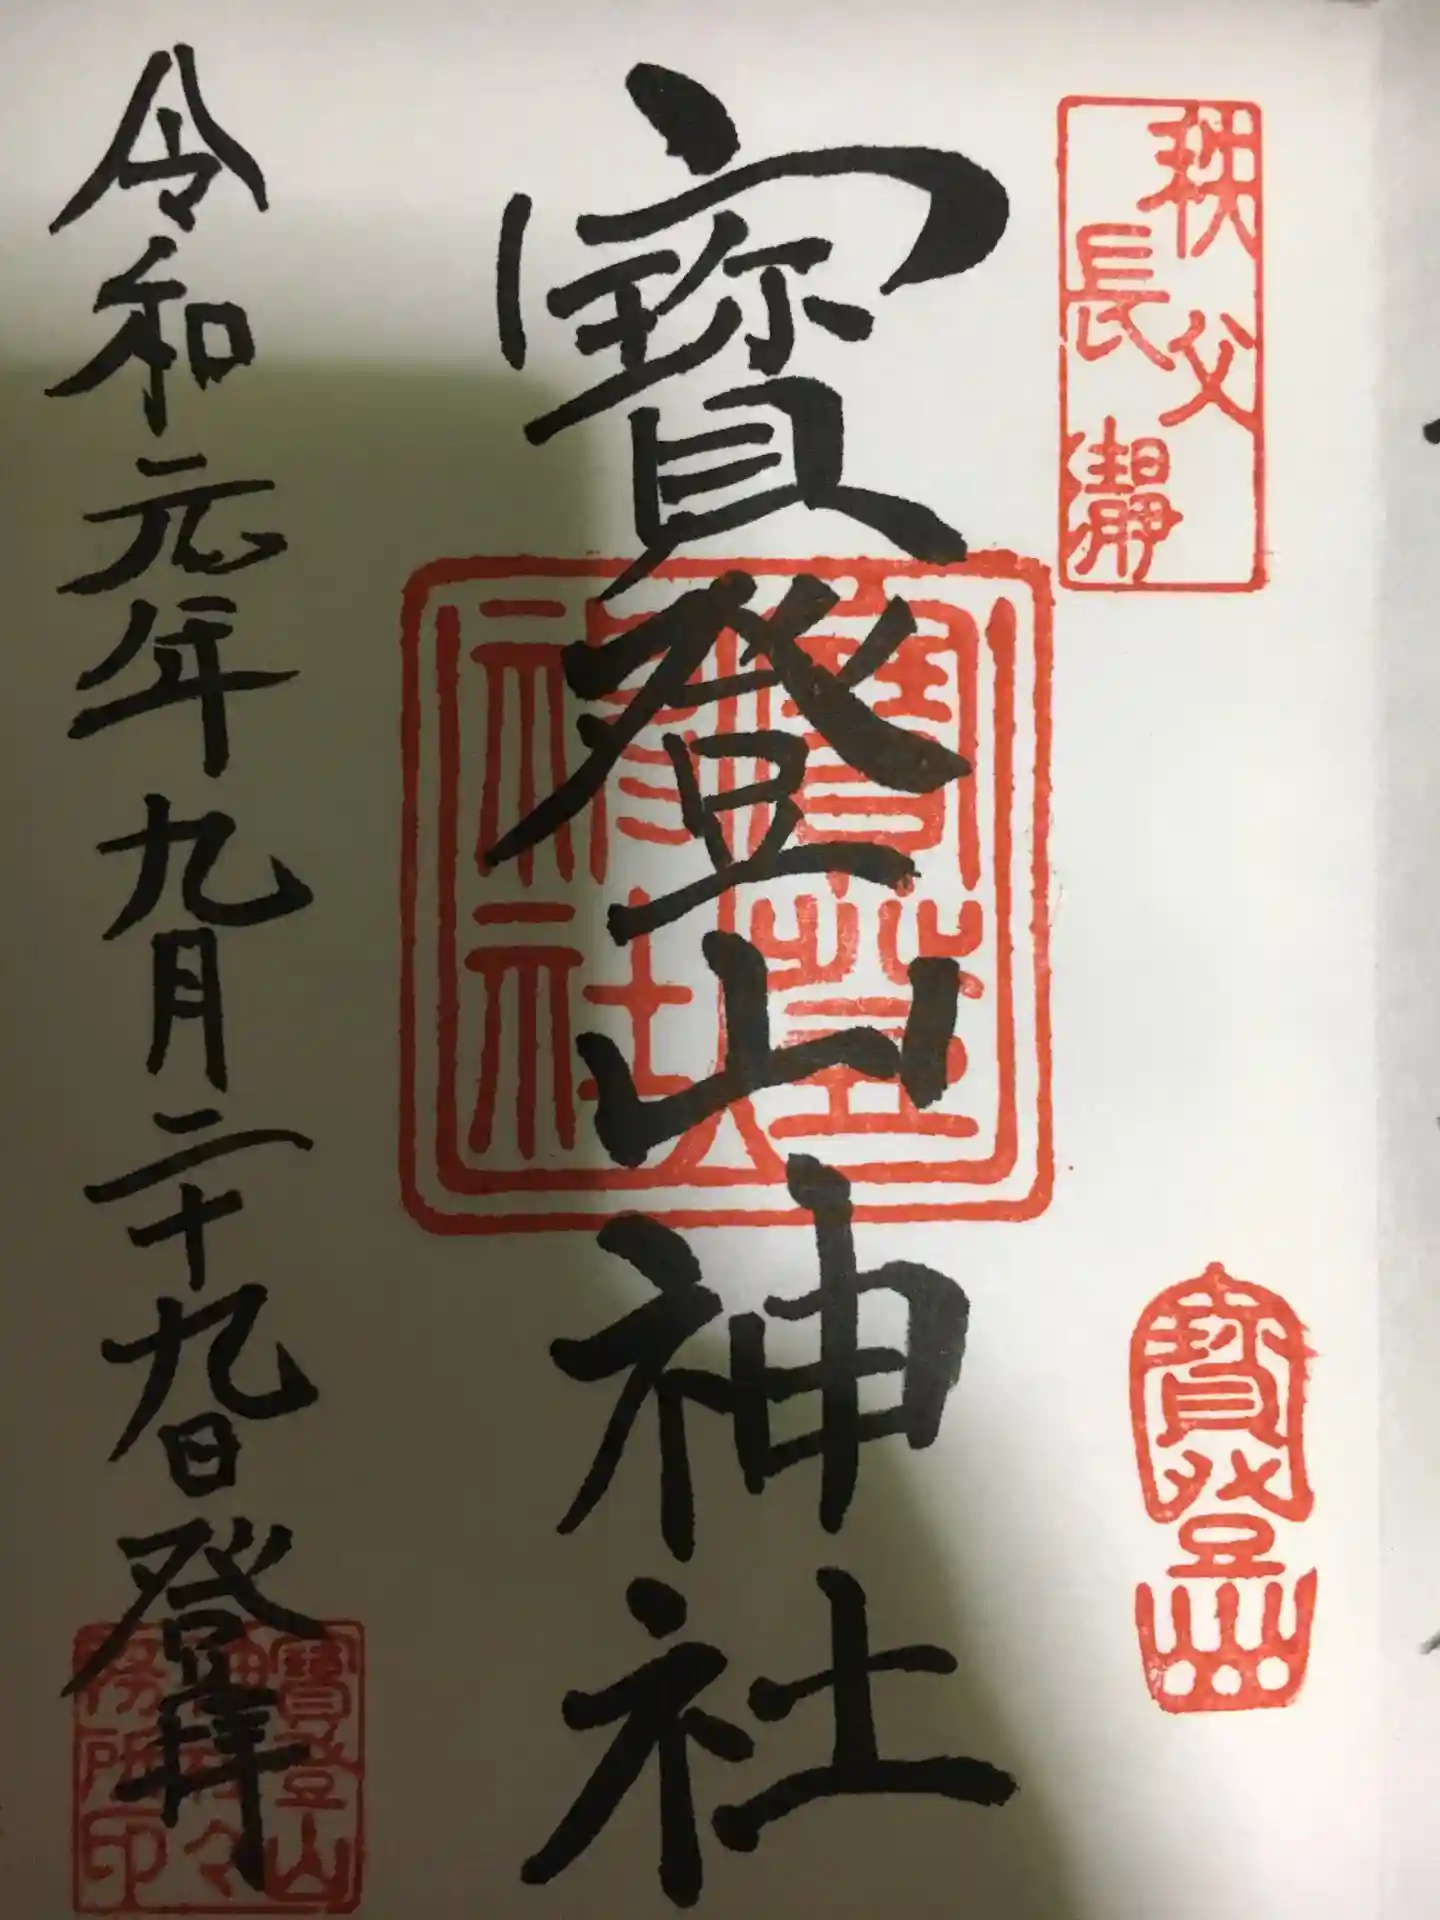 秩父
長瀞
寳登山
寳登山神社
令和元年九月二十九日登拜
寳登山
神社々
務所印